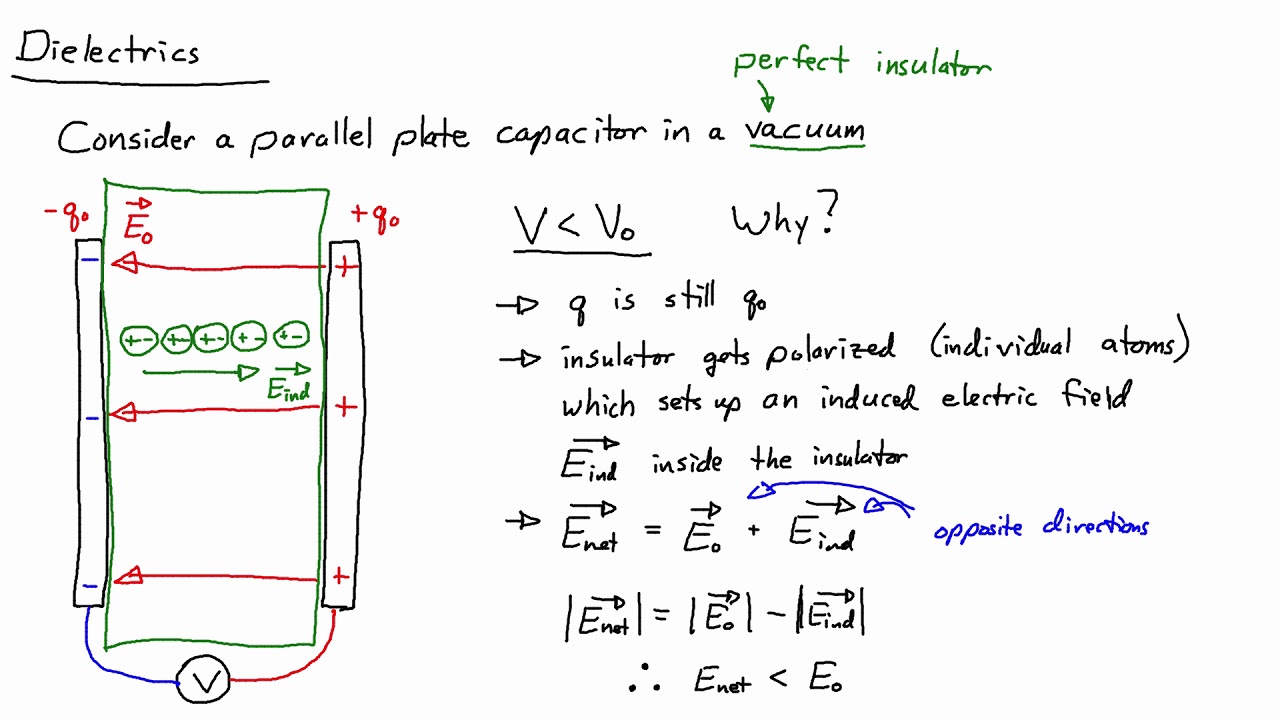 Dielectrics
perfect insulator
Consider a parallel plate capacitor in a vacuum
-q₀ E₀ +q₀
V < V₀ Why?
- +
→ q is still q₀
+- +- +- +- +-
→ insulator gets polarized (individual atoms)
E⃗ind
which sets up an induced electric field
- +
E⃗ind inside the insulator
→ E⃗net = E⃗₀ + E⃗ind opposite directions
- +
|E⃗net| = |E⃗₀| - |E⃗ind|
V
∴ Enet < E₀